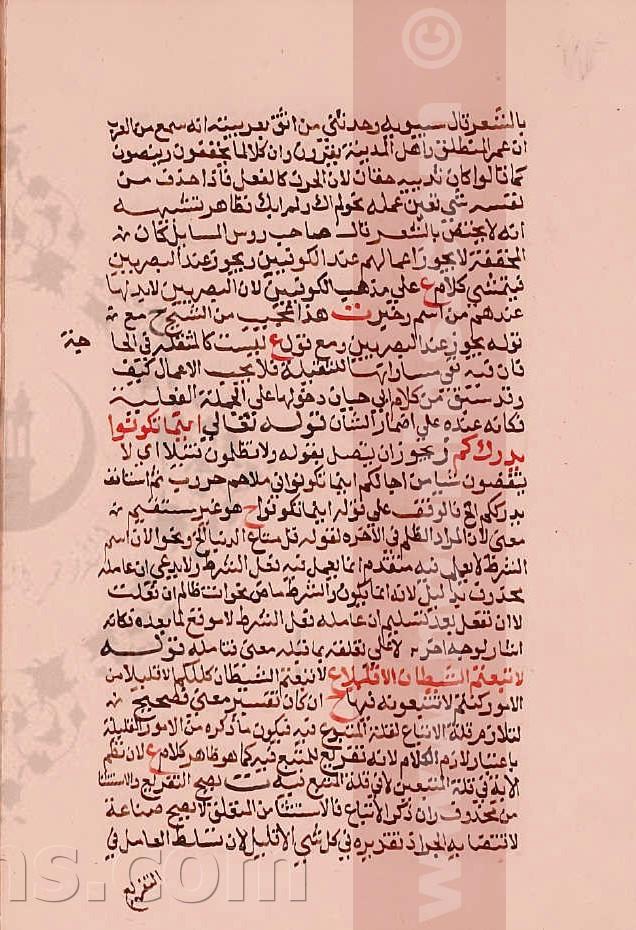 بالشعر قال سيبويه وحدثني من اثق بعربيته انه سمع من العرب
ان عمر المنطلق واهل المدينة يقرون وان كلا لما يخففون وينصبون
كما قالوا كان ثدييه حقان لان الحرف كالفعل فاذا حذف من
نفسه شي لم يغير عمله نحو لم اك ولم ابل فظاهر تشبيهه
انه لا يختص بالشعر قال صاحب روس المسايل كان
المخففة لا يجوز اعمالهم عند الكوفيين ويجوز عند البصريين
فيتمشي كلام ع علي مذهب الكوفيين لان البصريين لابد لها
عندهم من اسم وخبر ت هذا تعجيب من الشيخ ح مع
قوله يجوز عند البصريين ومع قول ع ليست كالمثقلة في الحا
جة
فان فيه نفي مساواتها للثقيلة فلا يجب الاعمال كيف
وقد سبق من كلام ابي حيان دخولها علي الجملة الفعلية
فكانه عنده علي اضمار الشان قوله تعالي اينما تكونوا
يدرككم ز يجوز ان يتصل بقوله ولا تظلمون فتيلا اي لا
تنقصون شيا من اجالكم اينما تكونوا في ملاحم حروب ثم استانف
يدرككم الخ فالوقف علي قوله اينما تكونوا ح هو غير مستقيم
معني لان المراد الظلم في الاخرة لقوله قل متاع الدنيا الخ ونحوا لان اسم
الشرط لا يعمل فيه متقدم انما يعمل فيه فعل الشرط ولا يدعي ان عامله
محذوف
لا ان تفعل بعد تسليم ان عامله فعل الشرط لا موقع لما بعده فكانه
اشار لوجه اخر لا علي تعلقه بما قبله معني فتامله قوله
لا تبعتم الشيطان الا قليلا ع لا تبعتم الشيطان كلكم الا قليلا من
الامور كنتم لا تتبعونه فيها ح ان كان تفسير معني فصحيح
لتلازم قلة الاتباع لقلة المتبوع فيه فيكون ما ذكره من الامور القليلة
باعتبار لازم الكلام لانه تفريع للمتبع فيه كما هو ظاهر كلام ع لان نظم
الاية في قلة المتبعين لا في قلة المتبع فيه ت يصح التفريع والاستثنا
من محذوف وان ذكر الاتباع فالاستثنا من المتعلق لا يصح صناعة
لانتصابه المجرد تقديره في كل شي الا قليل لان تسلط العامل في
التفريغ